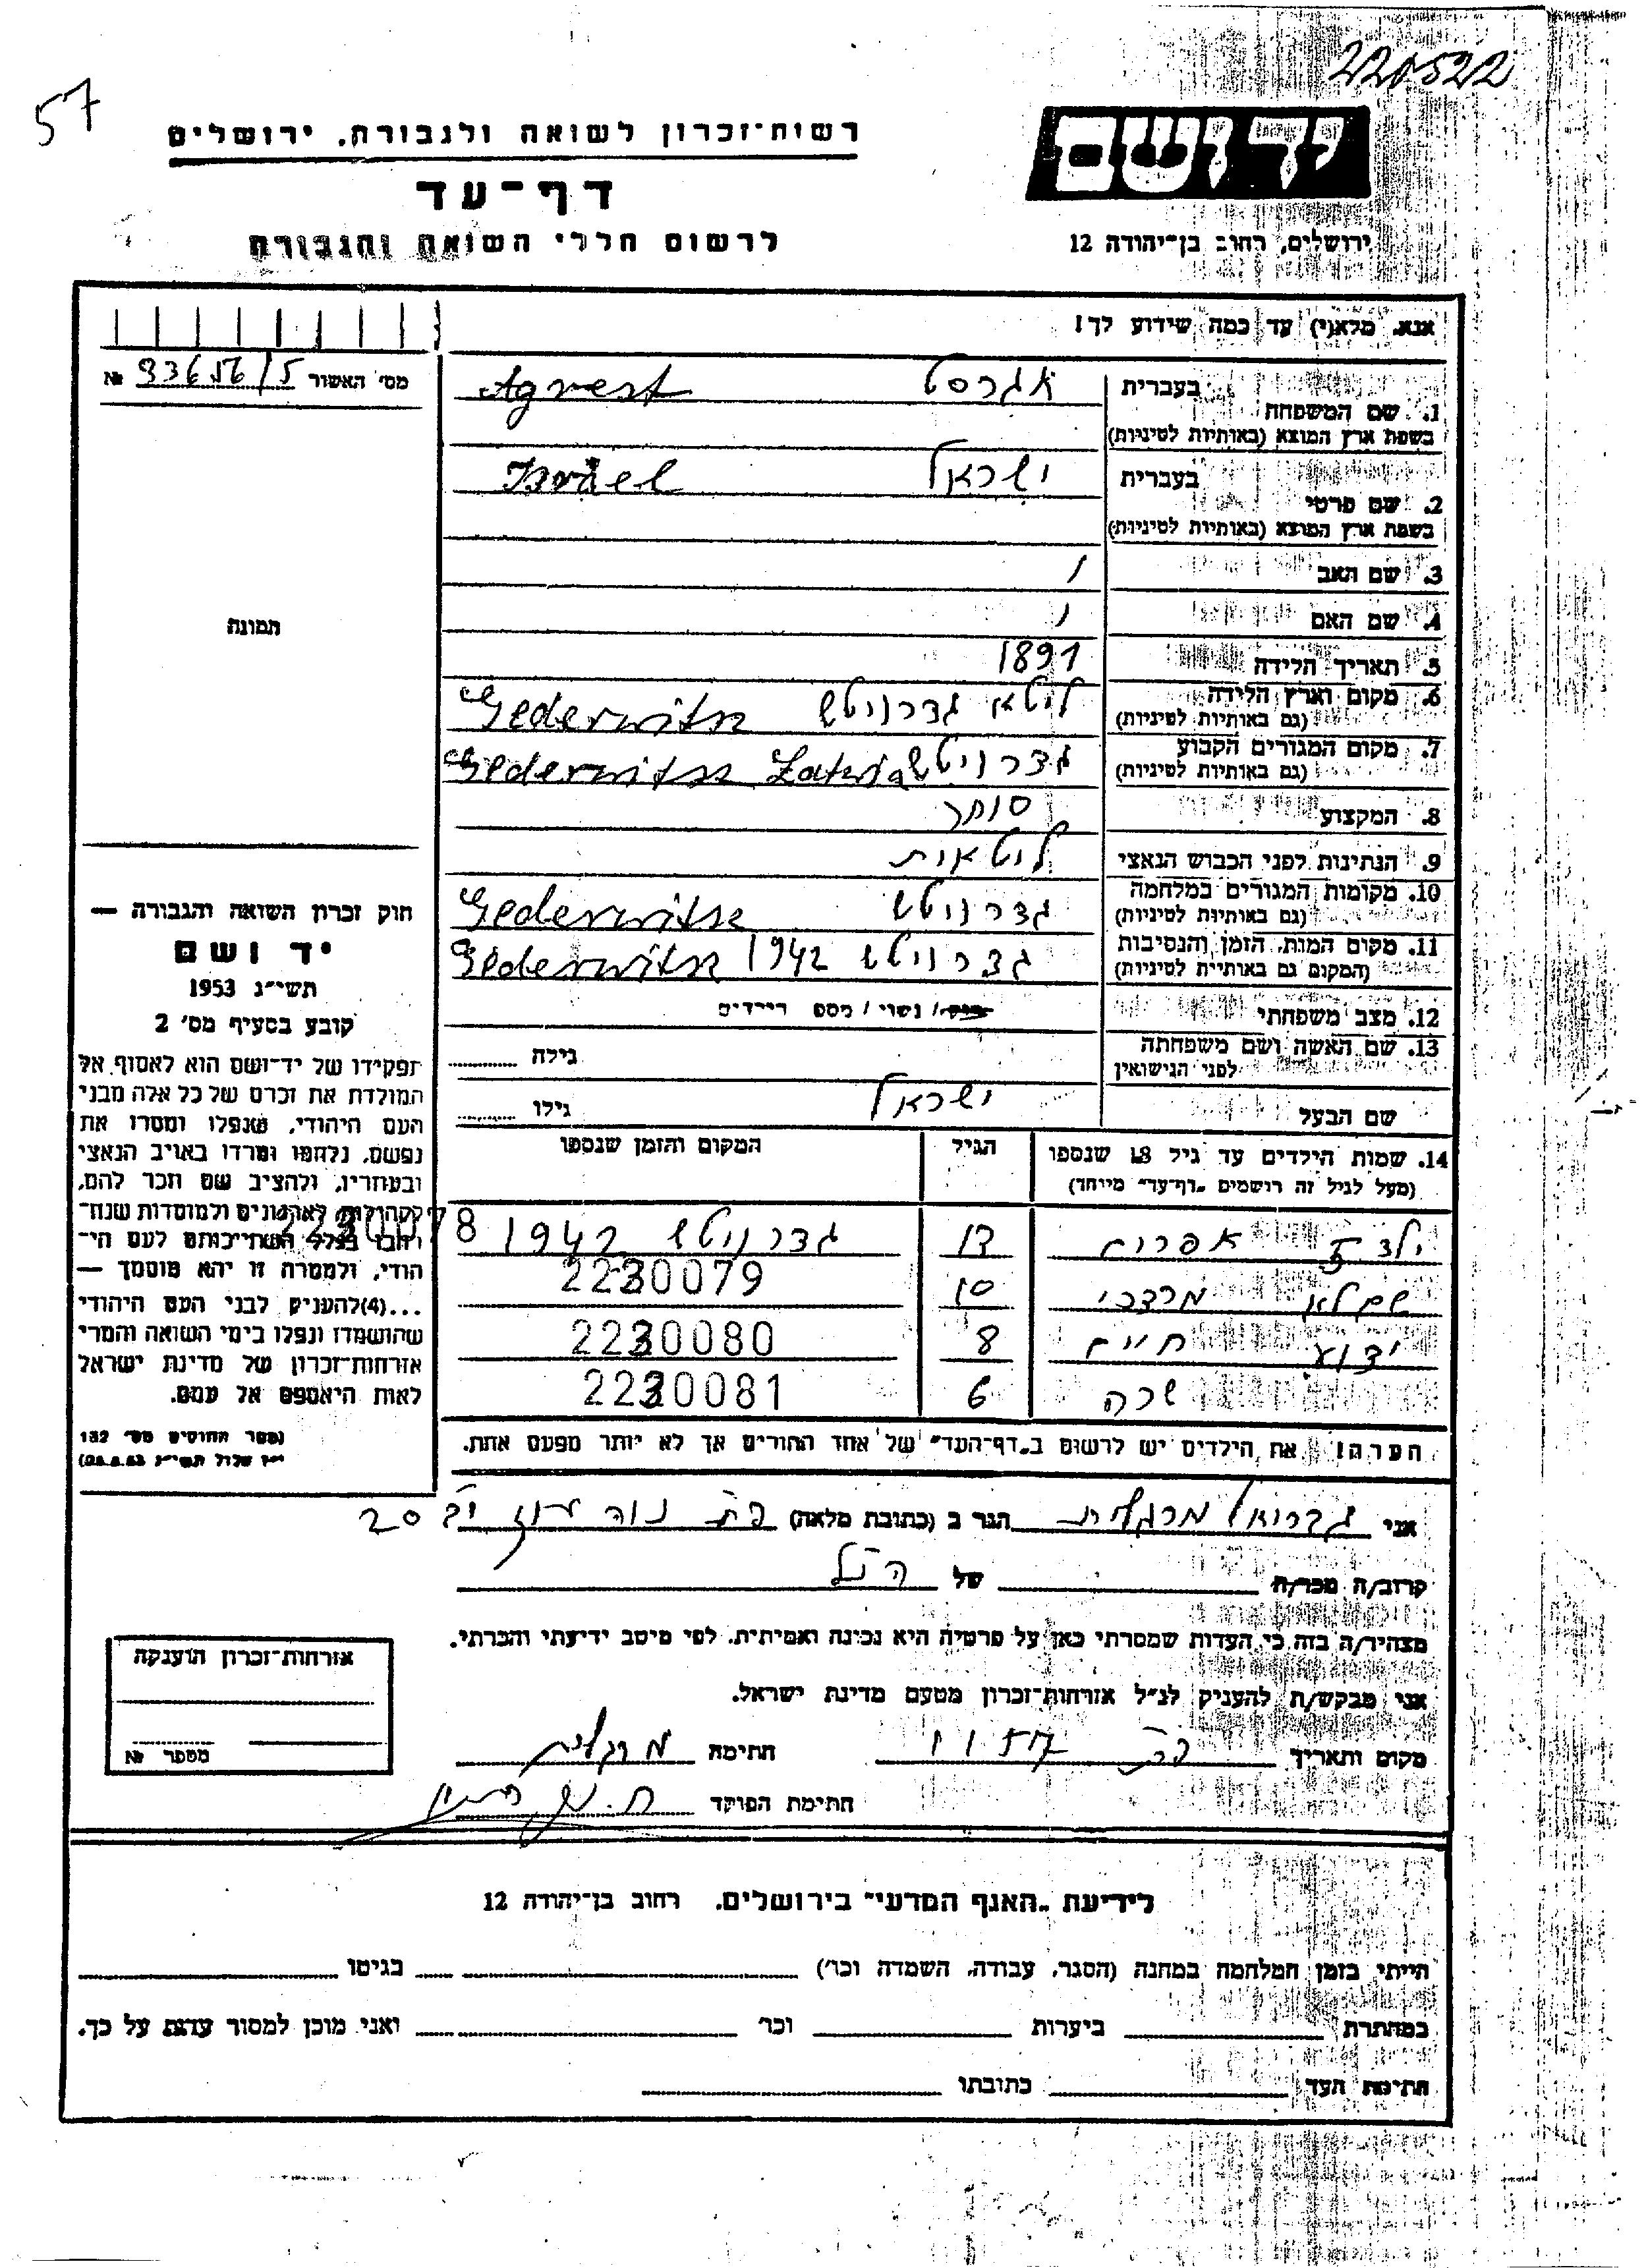 220522
57
יד ושם
רשות־זכרון לשואה ולגבורה, ירושלים
דף־עד
לרשום חללי השואה והגבורה
ירושלים, רחוב בן־יהודה 12
אנא, מלא(י) עד כמה שידוע לך!
מס׳ האשור 93656/5 №
1. שם המשפחה בעברית אגרסט Agrest
בשפת ארץ המוצא (באותיות לטיניות)
2. שם פרטי בעברית ישראל Israel
בשפת ארץ המוצא (באותיות לטיניות)
3. שם האב
4. שם האם
תמונה
5. תאריך הלידה 1891
6. מקום וארץ הלידה ליטא גדרויטש Gederwitsz
(גם באותיות לטיניות)
7. מקום המגורים הקבוע גדרויטש Gederwitsz
(גם באותיות לטיניות)
8. המקצוע סוחר
9. הנתינות לפני הכבוש הנאצי ליטאית
10. מקומות המגורים במלחמה גדרויטש Gederwitsz
(גם באותיות לטיניות)
11. מקום המות, הזמן והנסיבות גדרויטש 1942 Gederwitsz
(המקום גם באותיות לטיניות)
12. מצב משפחתי רווק / נשוי / מספר ילדים
13. שם האשה ושם משפחתה גילה
לפני הנישואין
שם הבעל ישראל גילו
חוק זכרון השואה והגבורה —
יד ושם
תשי״ג 1953
קובע בסעיף מס׳ 2
תפקידו של יד־ושם הוא לאסוף אל
המולדת את זכרם של כל אלה מבני
העם היהודי, שנפלו ומסרו את
נפשם, נלחמו ומרדו באויב הנאצי
ובעוזריו, ולהציב שם וזכר להם,
לקהילות, לארגונים ולמוסדות שנח־
רבו בגלל השתייכותם לעם הי־
הודי, ולמטרה זו יהא מוסמך —
...(4) להעניק לבני העם היהודי
שהושמדו ונפלו בימי השואה והמרי
אזרחות־זכרון של מדינת ישראל
לאות היאספם אל עמם.
(ספר החוקים מס׳ 132
י״ז אלול תשי״ג 28.8.53)
14. שמות הילדים עד גיל 18 שנספו הגיל המקום והזמן שנספו
(מעל לגיל זה רושמים „דף־עד״ מיוחד)
ילד אפרים גדרויטש 1942 2230078
שם לא מרדכי 10 2230079
ידוע חיים 8 2230080
שרה 6 2230081
הערה! את הילדים יש לרשום ב„דף־העד״ של אחד ההורים אך לא יותר מפעם אחת.
אני גבריאל מרגלית הגר ב (כתובת מלאה) פת נוה עוז 20
קרוב/ה מכר/ה של הנ״ל
מצהיר/ה בזה כי העדות שמסרתי כאן על פרטיה היא נכונה ואמיתית, לפי מיטב ידיעתי והכרתי.
אני מבקש/ת להעניק לנ״ל אזרחות־זכרון מטעם מדינת ישראל.
מקום ותאריך חתימה מרגלית
חתימת הפוקד
אזרחות־זכרון הוענקה
מספר №
לידיעת „האגף המדעי״ בירושלים, רחוב בן־יהודה 12
הייתי בזמן המלחמה במחנה (הסגר, עבודה, השמדה וכו׳) בגיטו
במחתרת ביערות וכו׳ ואני מוכן למסור עדות על כך.
חתימת העד כתובתו